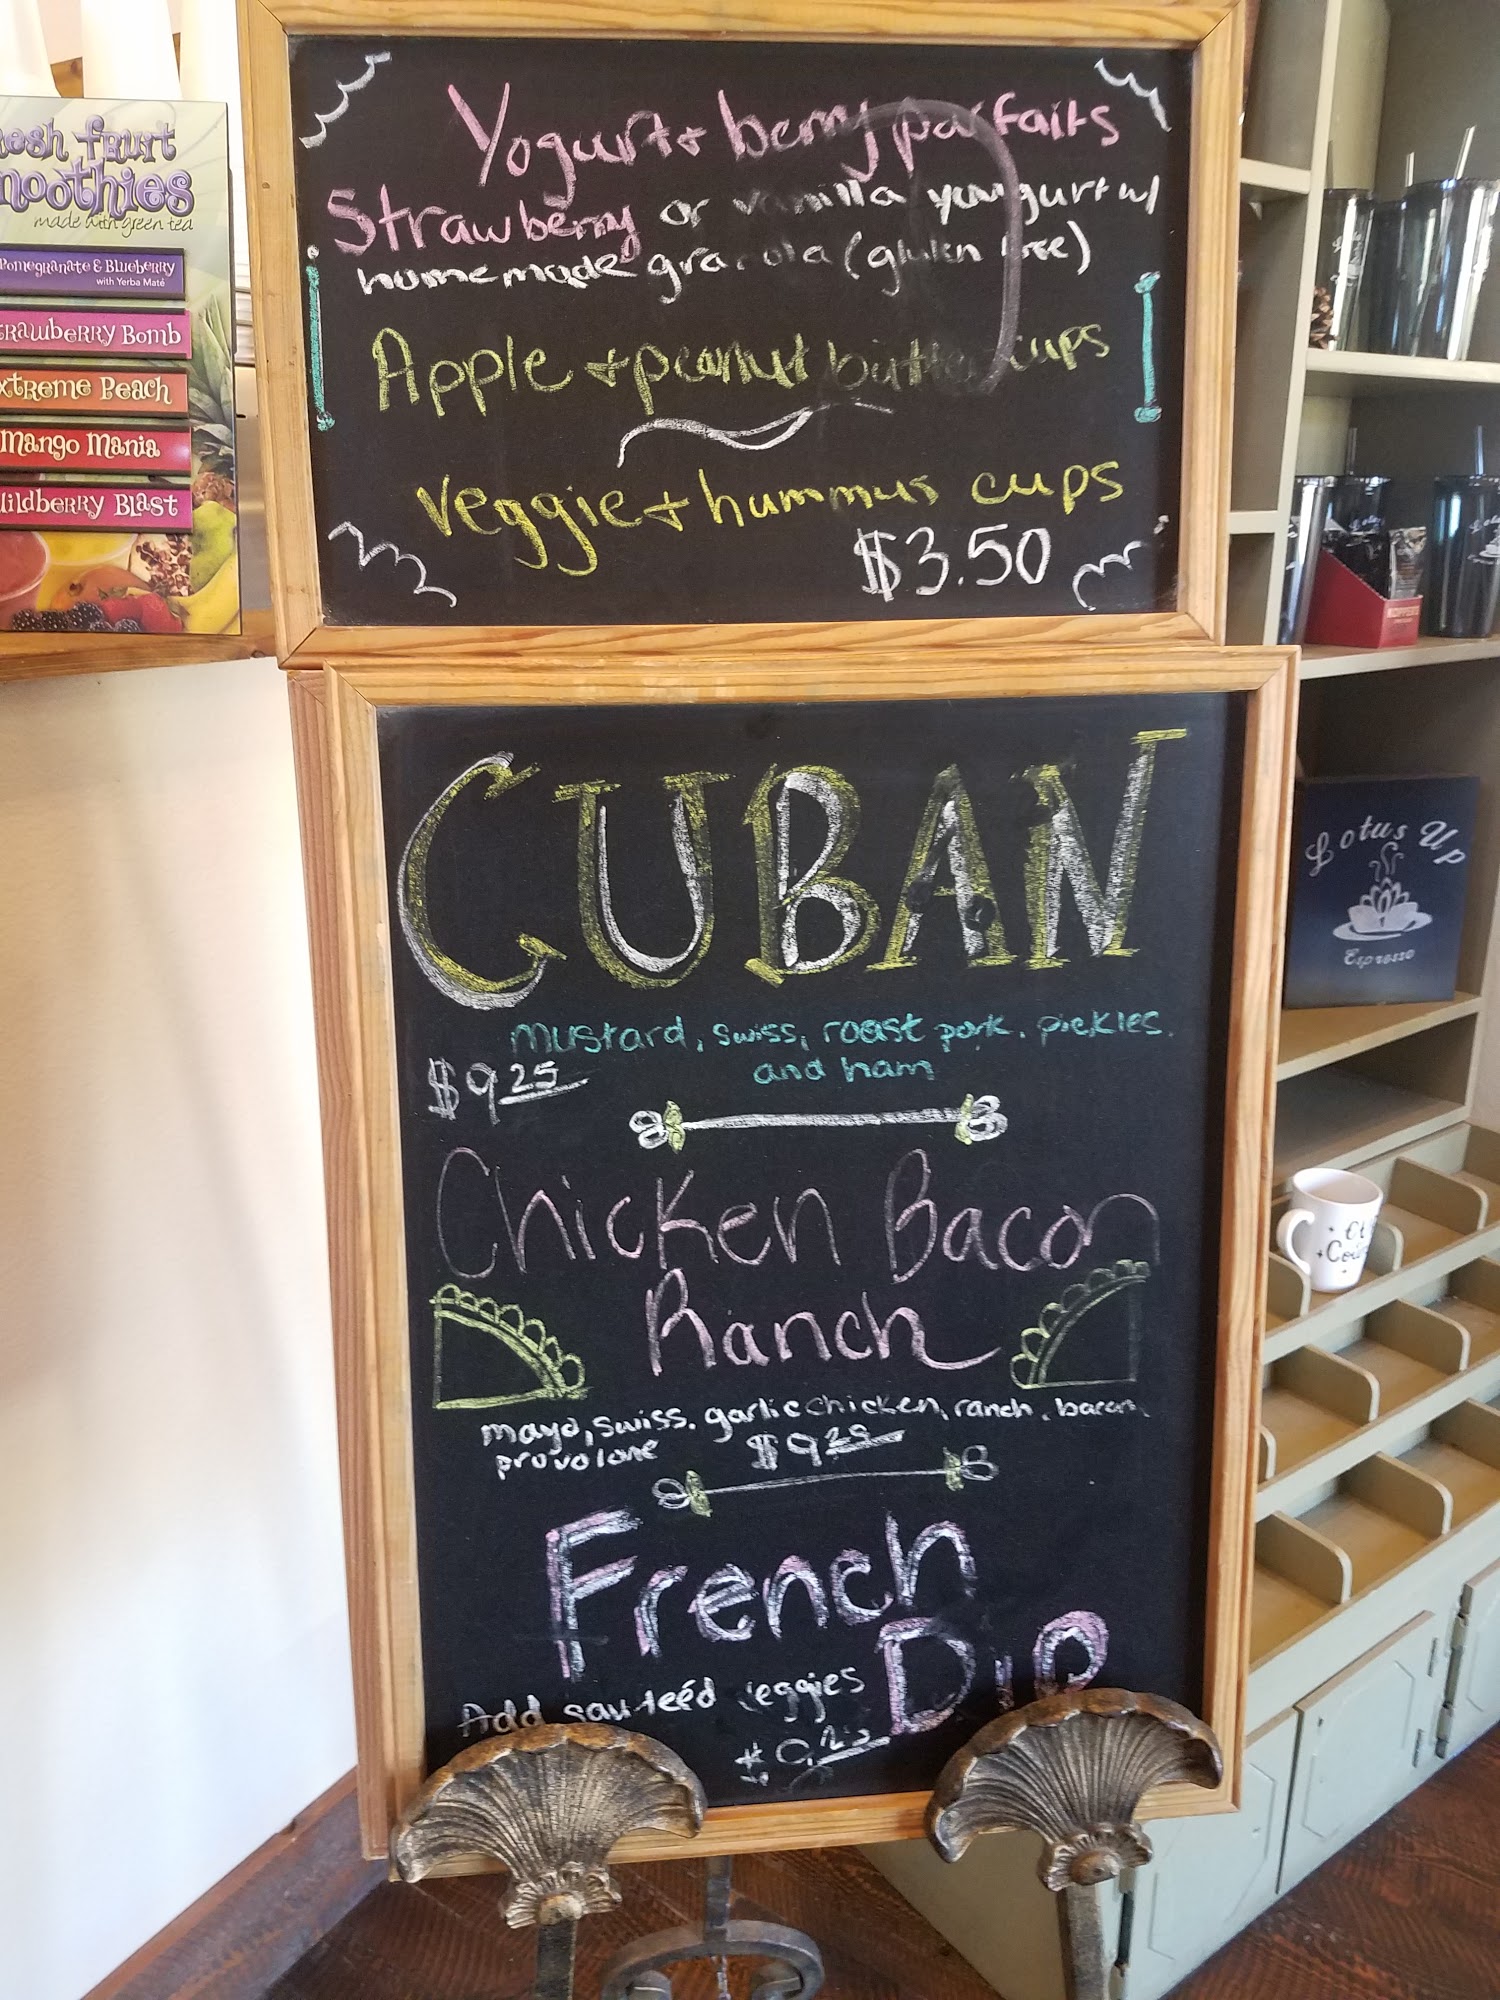 Yogurt + berry parfaits
Strawberry or vanilla yougurt w/
homemade granola (gluten free)
Apple + peanut butter cups
veggie + hummus cups
$3.50
CUBAN
mustard, swiss, roast pork, pickles,
and ham
$9 25
Chicken Bacon
Ranch
mayo, swiss, garlic chicken, ranch, bacon,
provolone
$9 25
French
Dip
Add sauteéd veggies
fruit
made with green tea
Pomegranate & Blueberry
with Yerba Maté
Bomb
Peach
Mango Mania
Blast
Lotus Up
Espresso